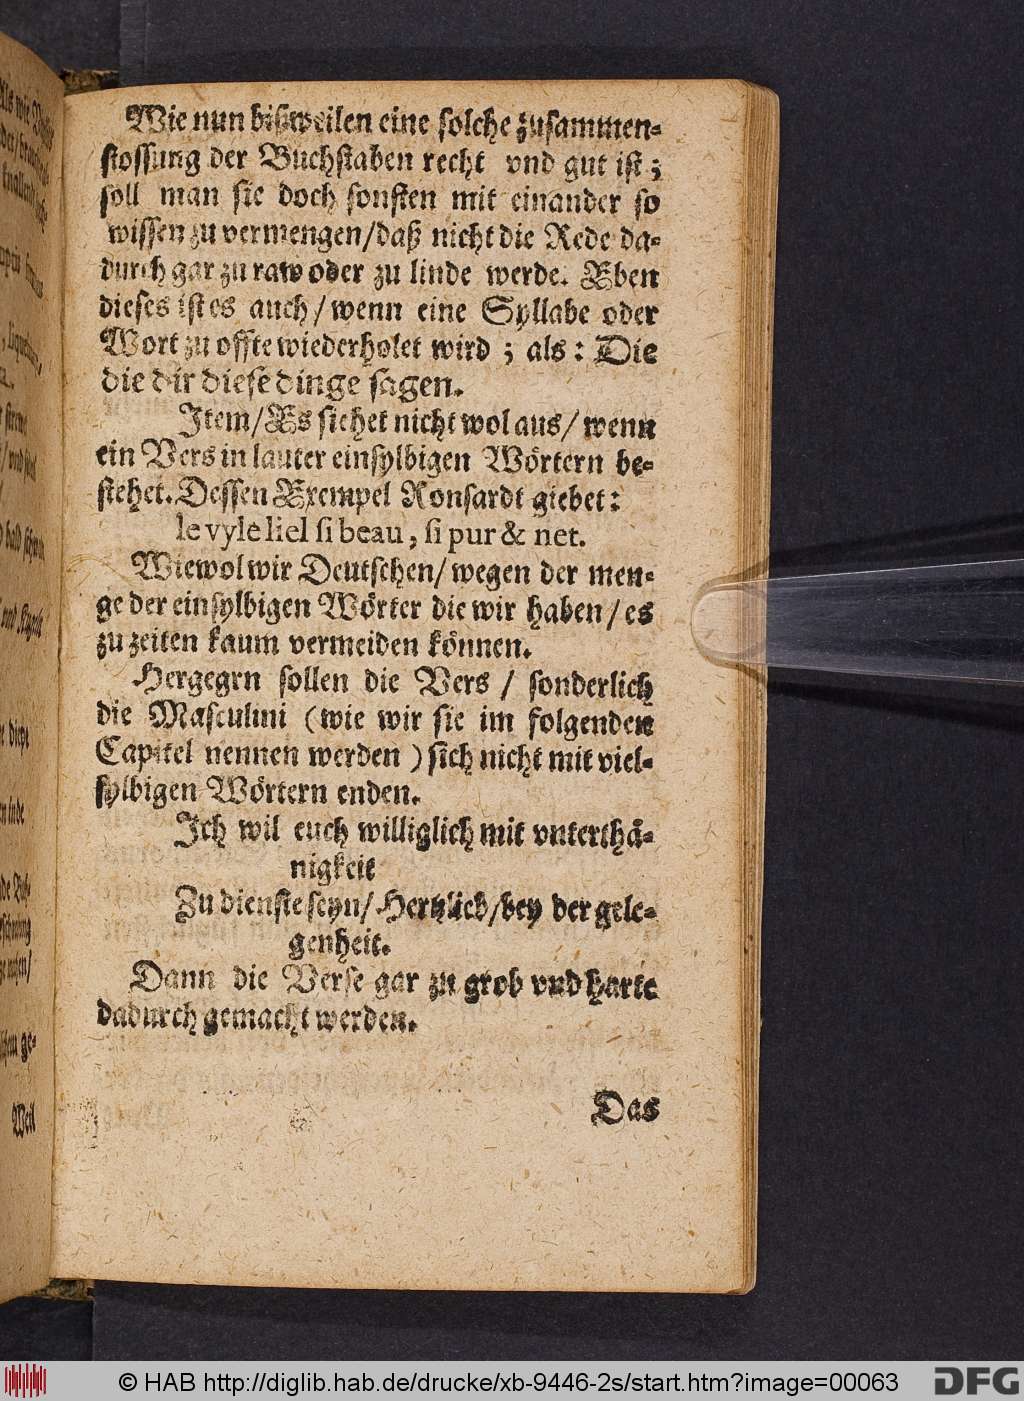 Wie nun bißweilen eine solche zusammen-
stossung der Buchstaben recht vnd gut ist;
soll man sie doch sonsten mit einander so
wissen zu vermengen/daß nicht die Rede da-
durch gar zu raw oder zu linde werde. Eben
dieses ist es auch/wenn eine Syllabe oder
Wort zu offte wiederholet wird; als: Die
die dir diese dinge sagen.
Item/Es siehet nicht wol aus/wenn
ein Vers in lauter einsylbigen Wörtern be-
stehet. Dessen Exempel Ronsardt giebet:
le vyle liel si beau, si pur & net.
Wiewol wir Deutschen/wegen der men-
ge der einsylbigen Wörter die wir haben/es
zu zeiten kaum vermeiden können.
Hergegrn sollen die Vers/sonderlich
die Masculini (wie wir sie im folgenden
Capitel nennen werden) sich nicht mit viel-
sylbigen Wörtern enden.
Ich wil euch williglich mit vnterthä-
nigkeit
Zu dienste seyn/Hertzlieb/bey der gele-
genheit.
Dann die Verse gar zu grob vnd harte
dadurch gemacht werden.
Das
Weil
© HAB http://diglib.hab.de/drucke/xb-9446-2s/start.htm?image=00063
DFG